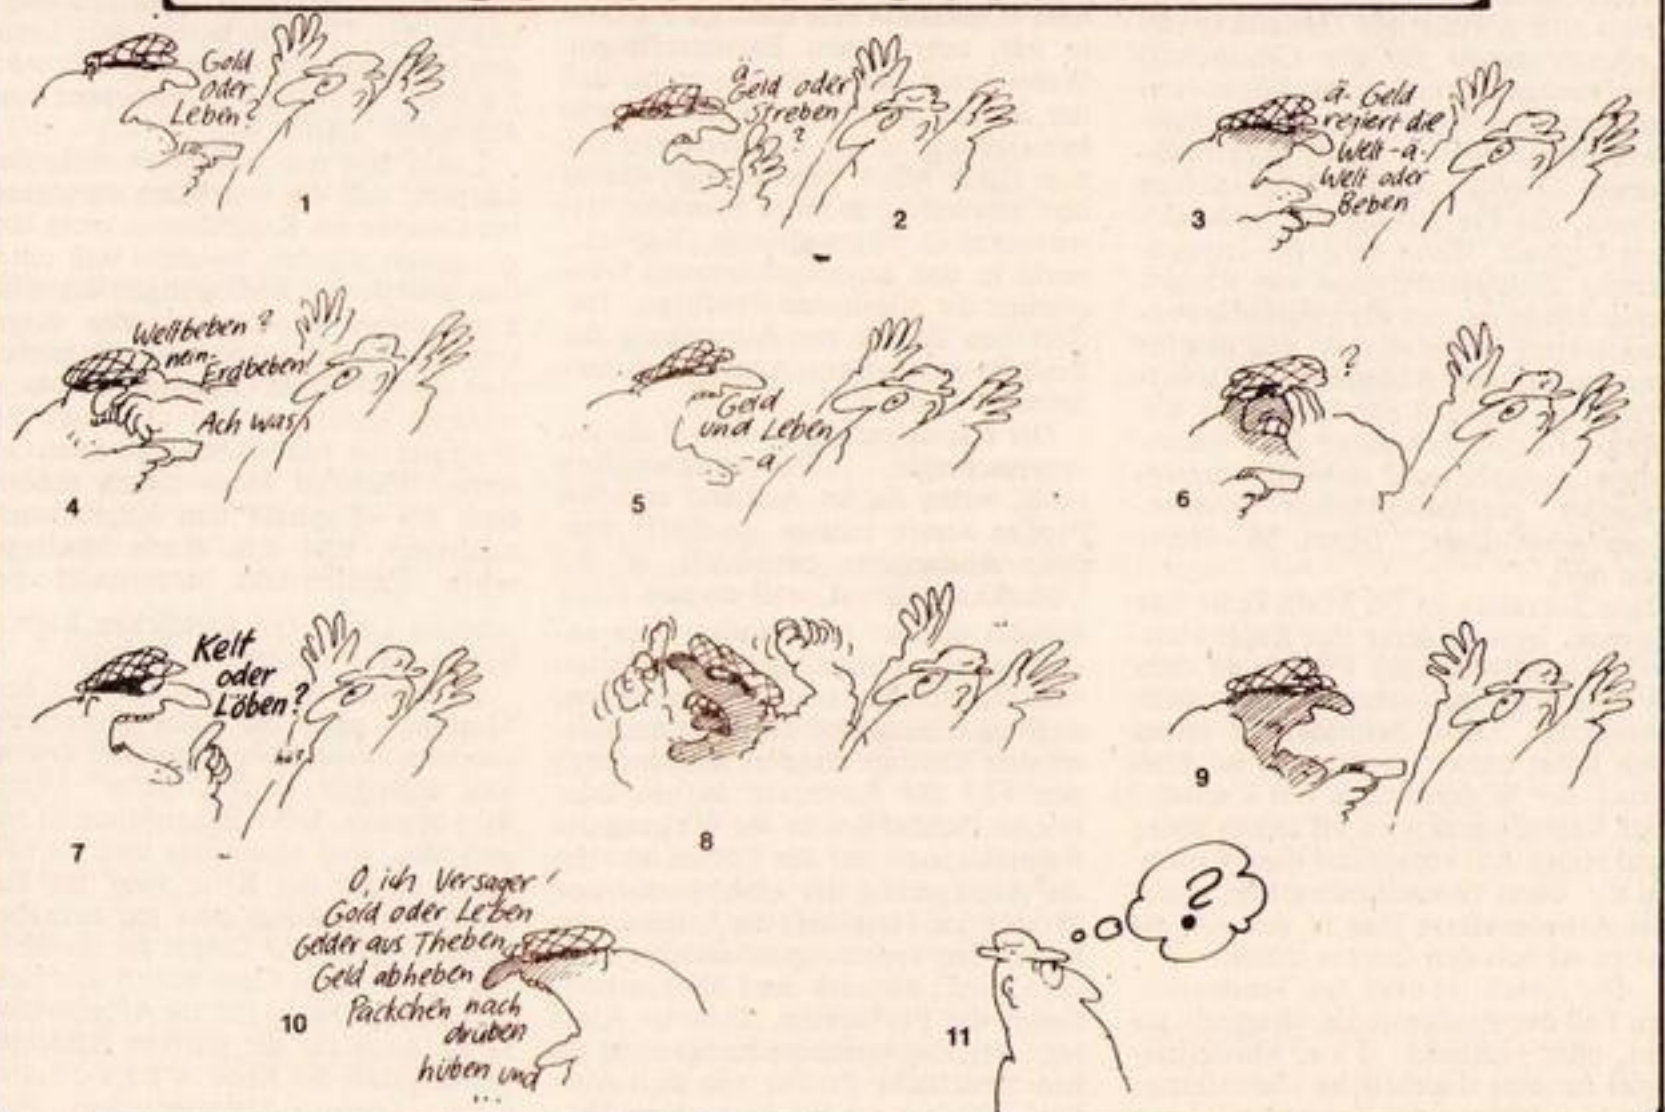 Gold
oder
Leben?
1
ä-
Geld oder
Streben
?
2
ä- Geld
regiert die
Welt-ä-
Welt oder
Beben
3
Weltbeben?
nein-
Erdbeben!
Ach was
4
Geld
und Leben
-ä-
5
?
6
Kelt
oder
Löben?
hä?
7
8
9
O, ich Versager!
Gold oder Leben
Gelder aus Theben
Geld abheben
Päckchen nach
drüben
hüben und
...
10
?
11